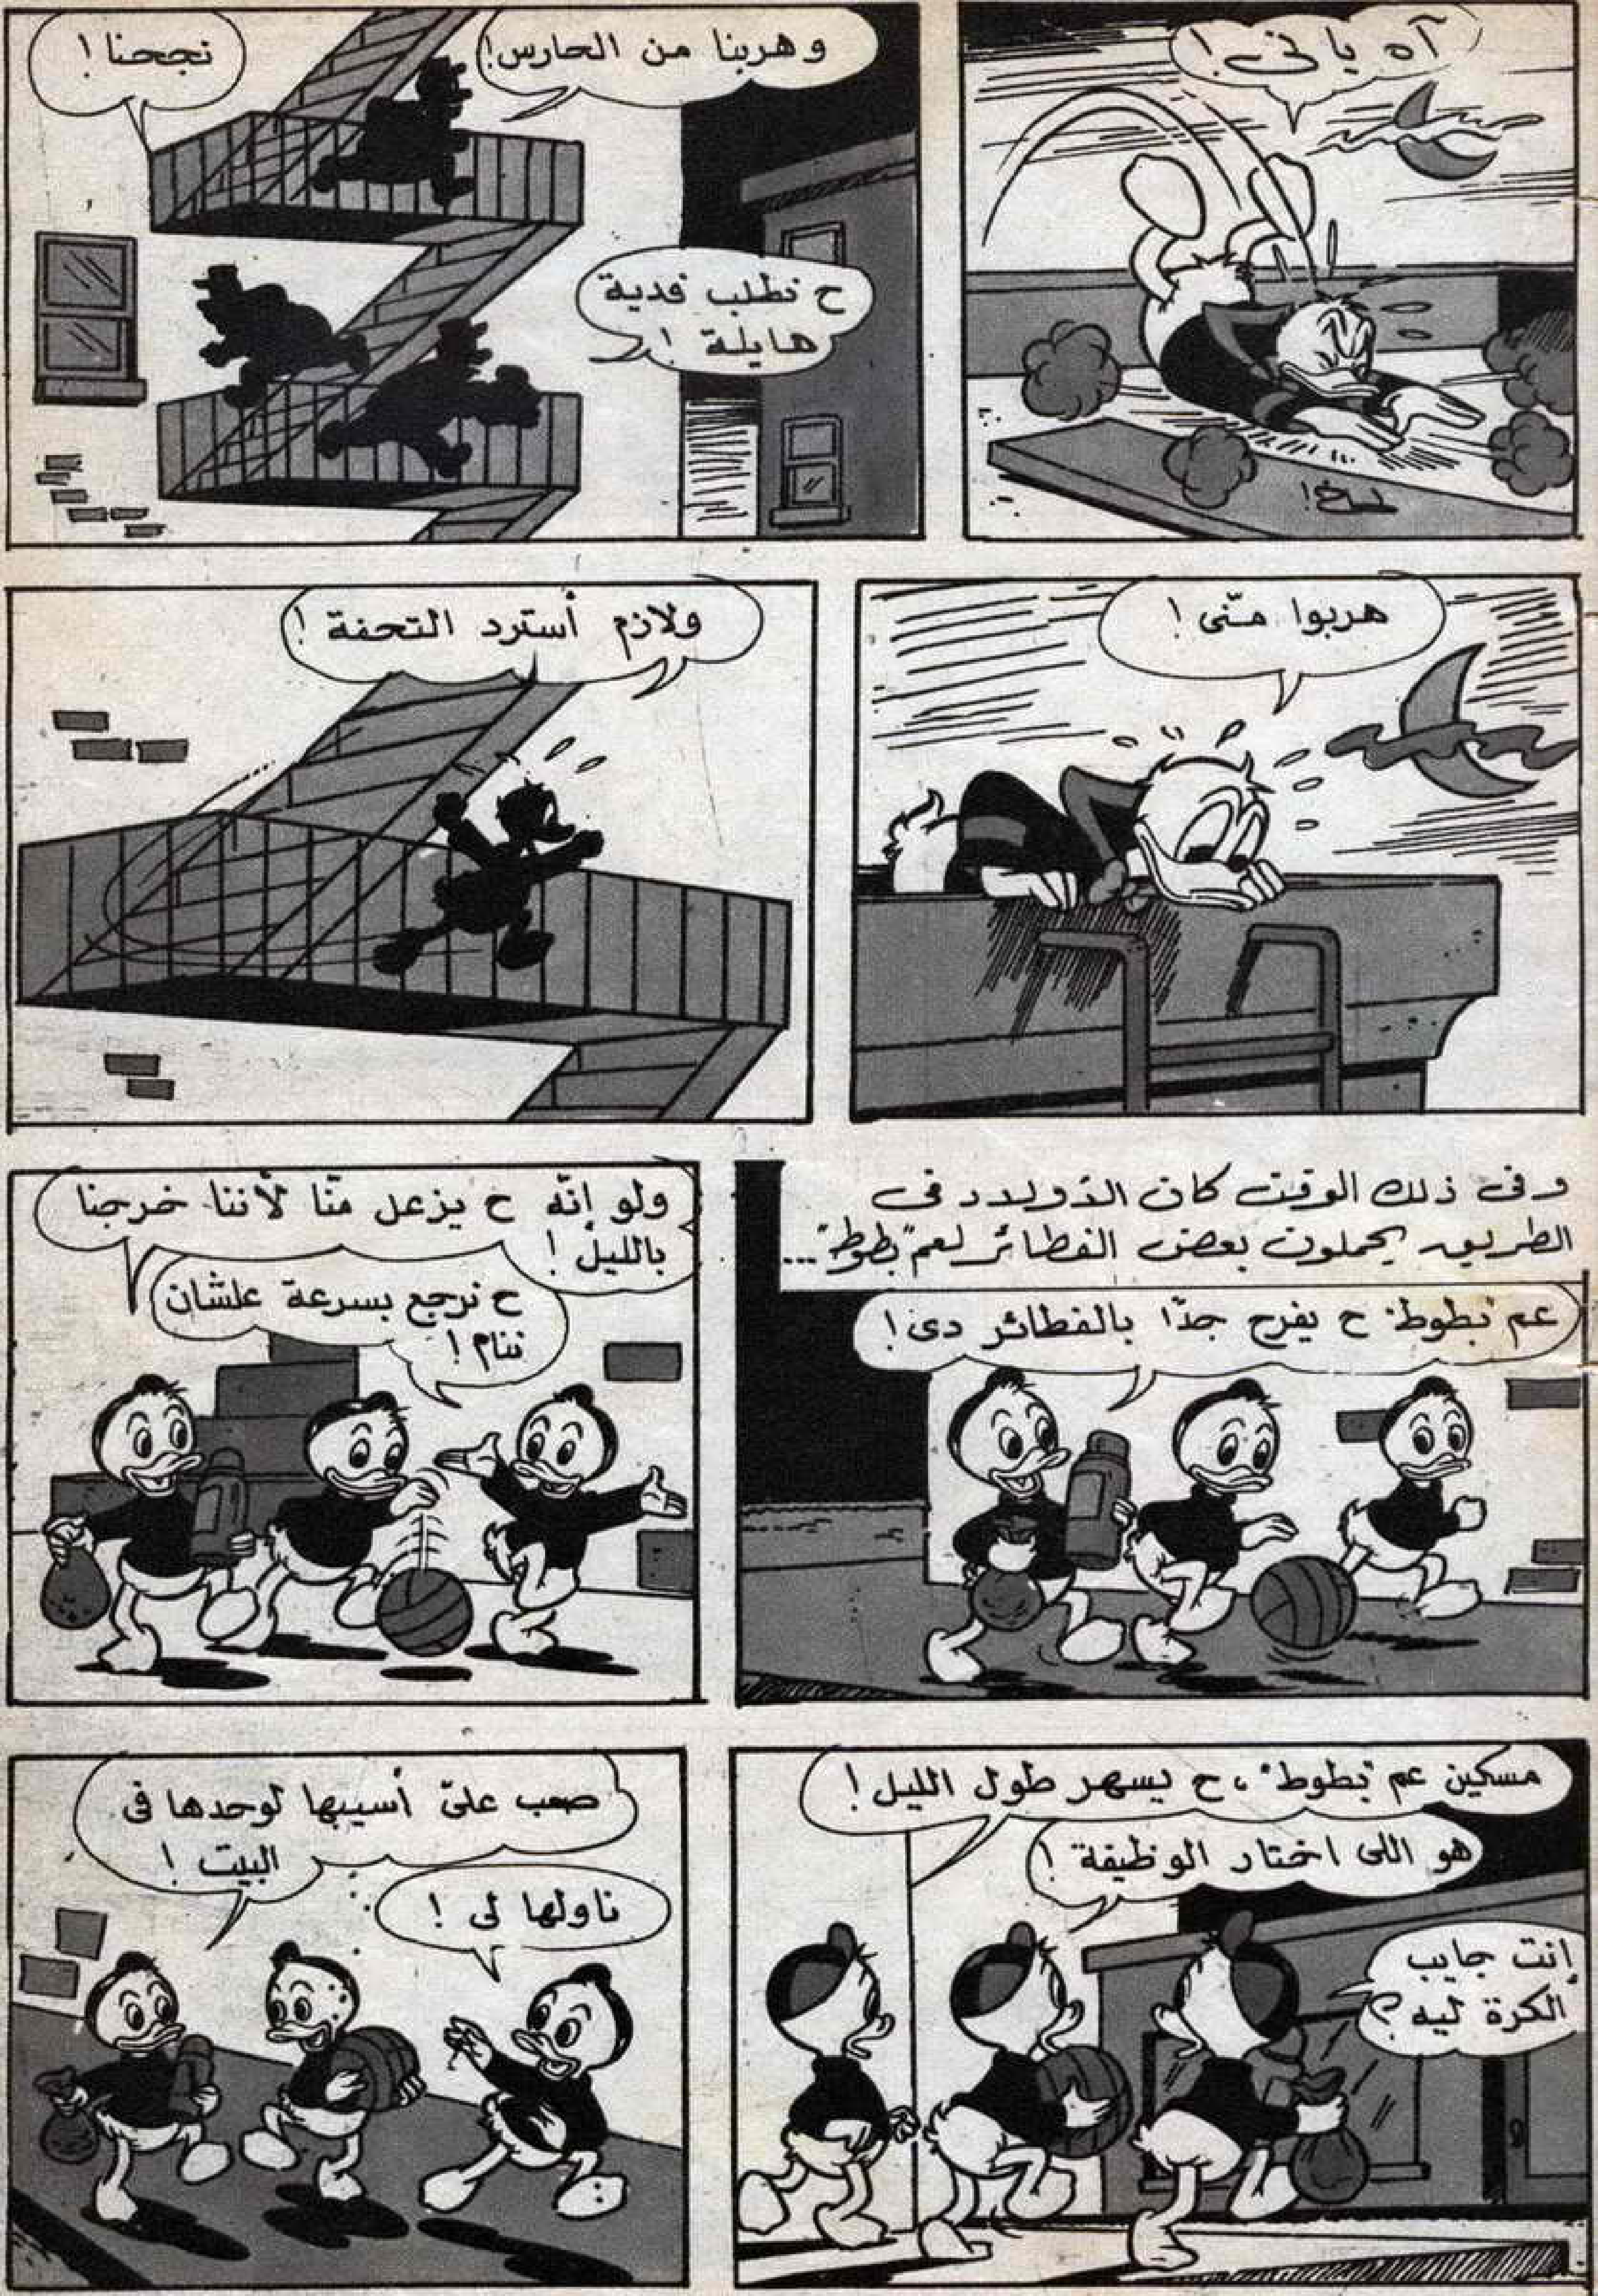 آه يا نى !
لبخ !
نجحنا !
وهربنا من الحارس !
ح نطلب فدية
هايلة !
هربوا منّى !
ولازم أسترد التحفة !
وفى ذلك الوقت كان الأولاد فى
الطريق يحملون بعض الفطائر لعم "بطوط" ...
عم "بطوط" ح يفرح جدّا بالفطائر دى !
ولو إنّه ح يزعل منّا لأننا خرجنا
بالليل !
ح نرجع بسرعة علشان
ننام !
مسكين عم "بطوط" ، ح يسهر طول الليل !
هو اللى اختار الوظيفة !
إنت جايب
الكرة ليه ؟
صعب علىّ أسيبها لوحدها فى
البيت !
ناولها لى !